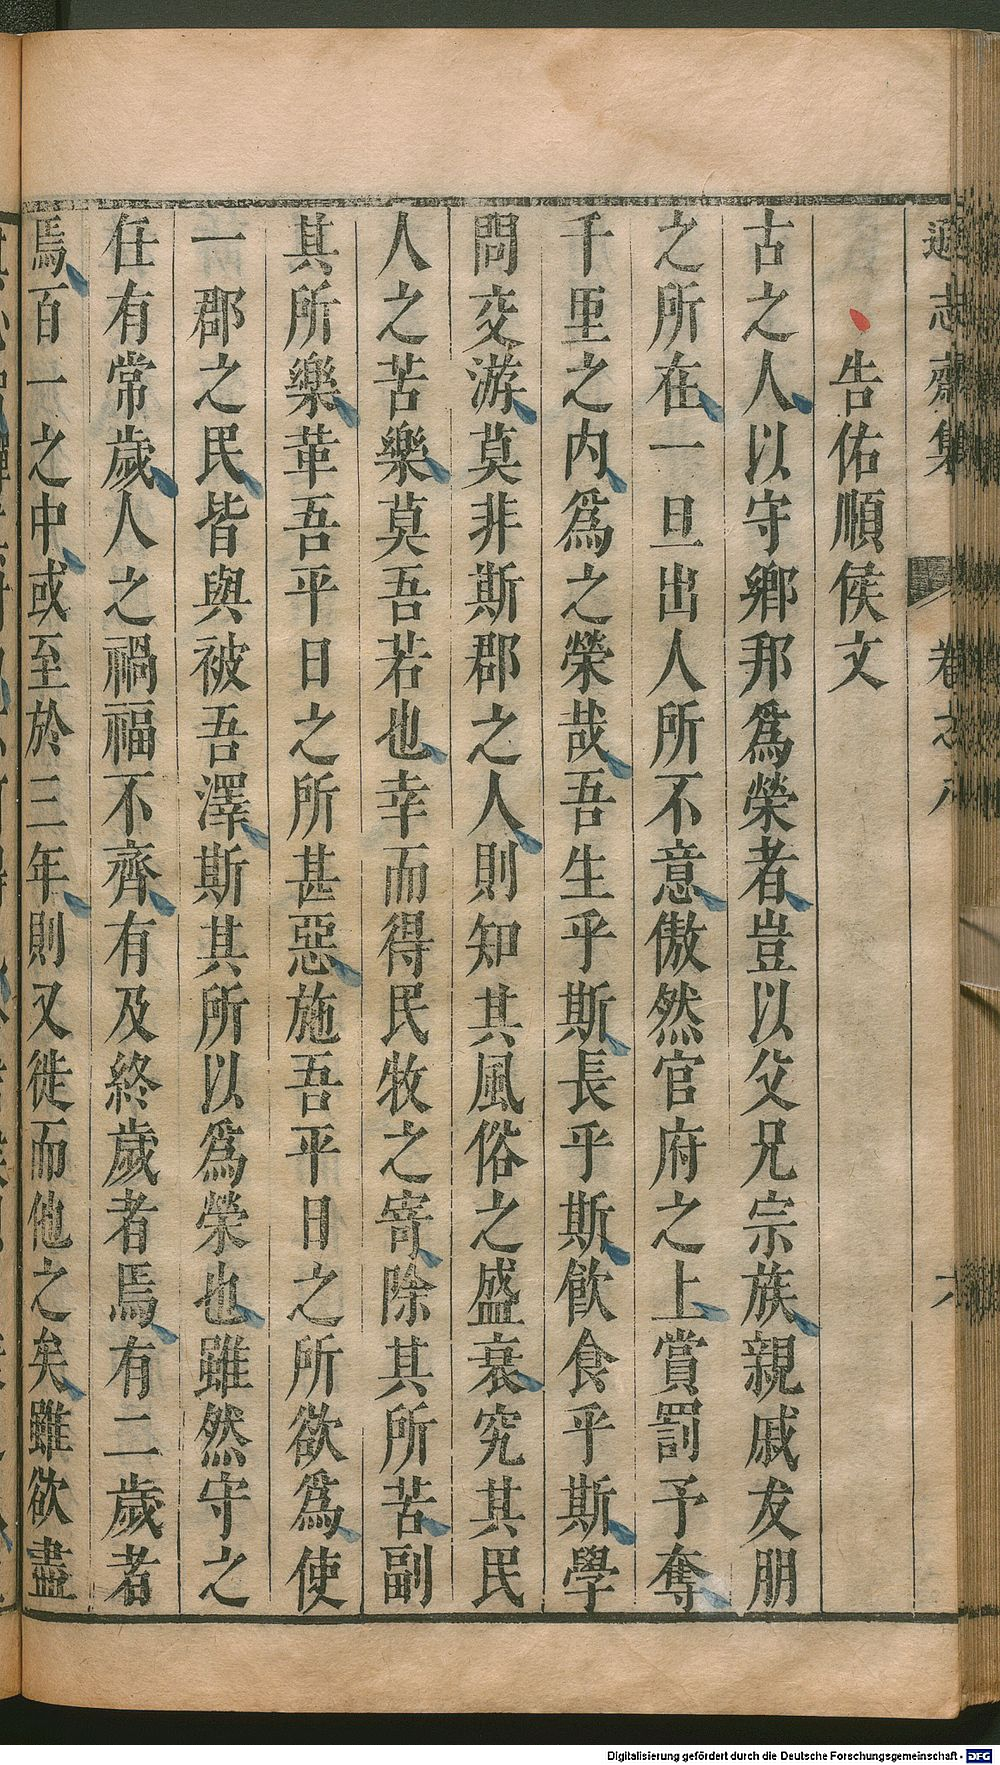 遜志齋集 卷之八 六
告佑順侯文
古之人以守鄉邦爲榮者豈以父兄宗族親戚友朋
之所在一旦出人所不意傲然官府之上賞罰予奪
千里之內爲之榮哉吾生乎斯長乎斯飲食乎斯學
問交游莫非斯郡之人則知其風俗之盛衰究其民
人之苦樂莫吾若也幸而得民牧之寄除其所苦副
其所樂革吾平日之所甚惡施吾平日之所欲爲使
一郡之民皆與被吾澤斯其所以爲榮也雖然守之
任有常歲人之禍福不齊有及終歲者焉有二歲者
焉百一之中或至於三年則又徙而他之矣雖欲盡
Digitalisierung gefördert durch die Deutsche Forschungsgemeinschaft - DFG